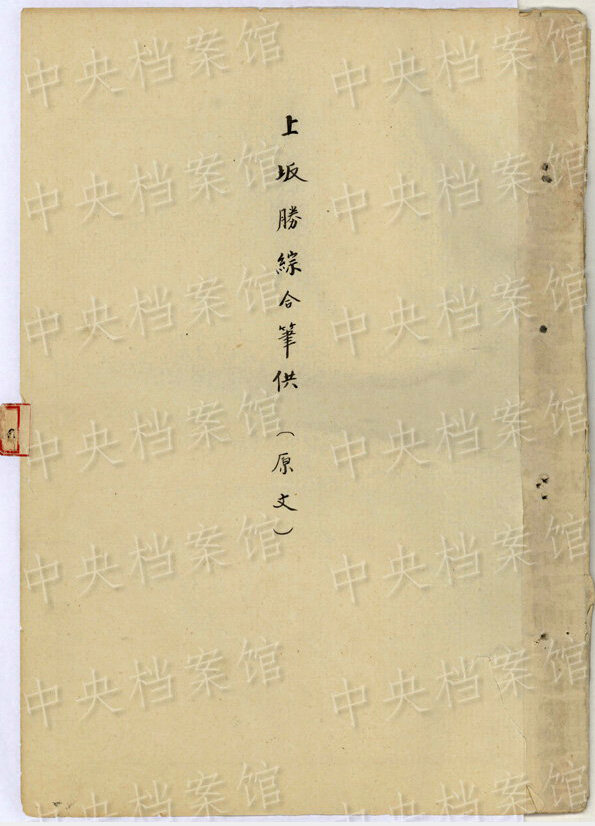 上坂勝綜合筆供（原文）
中央档案馆 中央档案馆
中央档案馆 中央档案馆
中央档案馆 中央档案馆
中央档案馆 中央档案馆
中央档案馆 中央档案馆
中央档案馆 中央档案馆
中央档案馆 中央档案馆